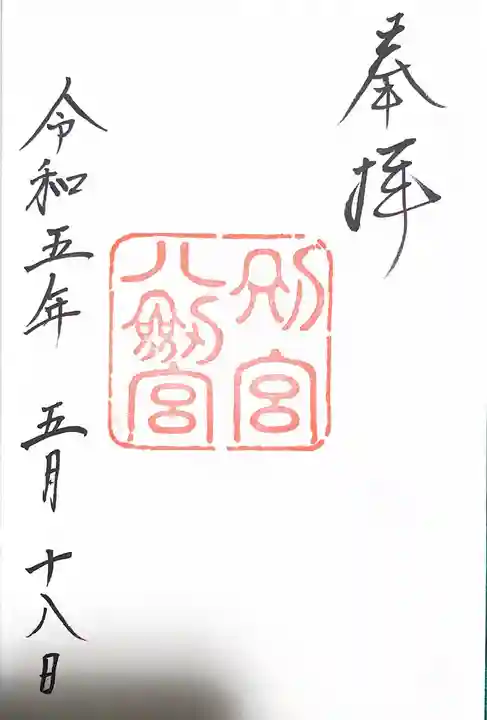 奉拝
別宮
八剱宮
令和五年 五月 十八日